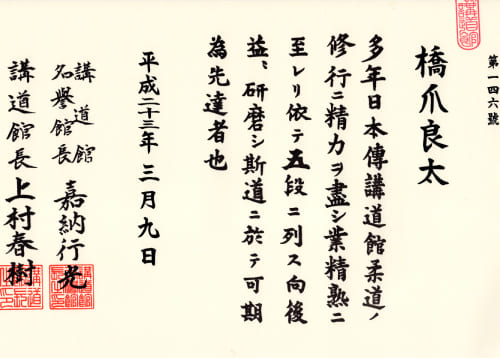 第一四六號
橋爪良太
多年日本傳講道館柔道ノ
修行ニ精力ヲ盡シ業精熟ニ
至レリ依テ五段ニ列ス向後
益〻研磨シ斯道ニ於テ可期
為先達者也
平成二十三年三月九日
講道館
名譽館長 嘉納行光
講道館長 上村春樹